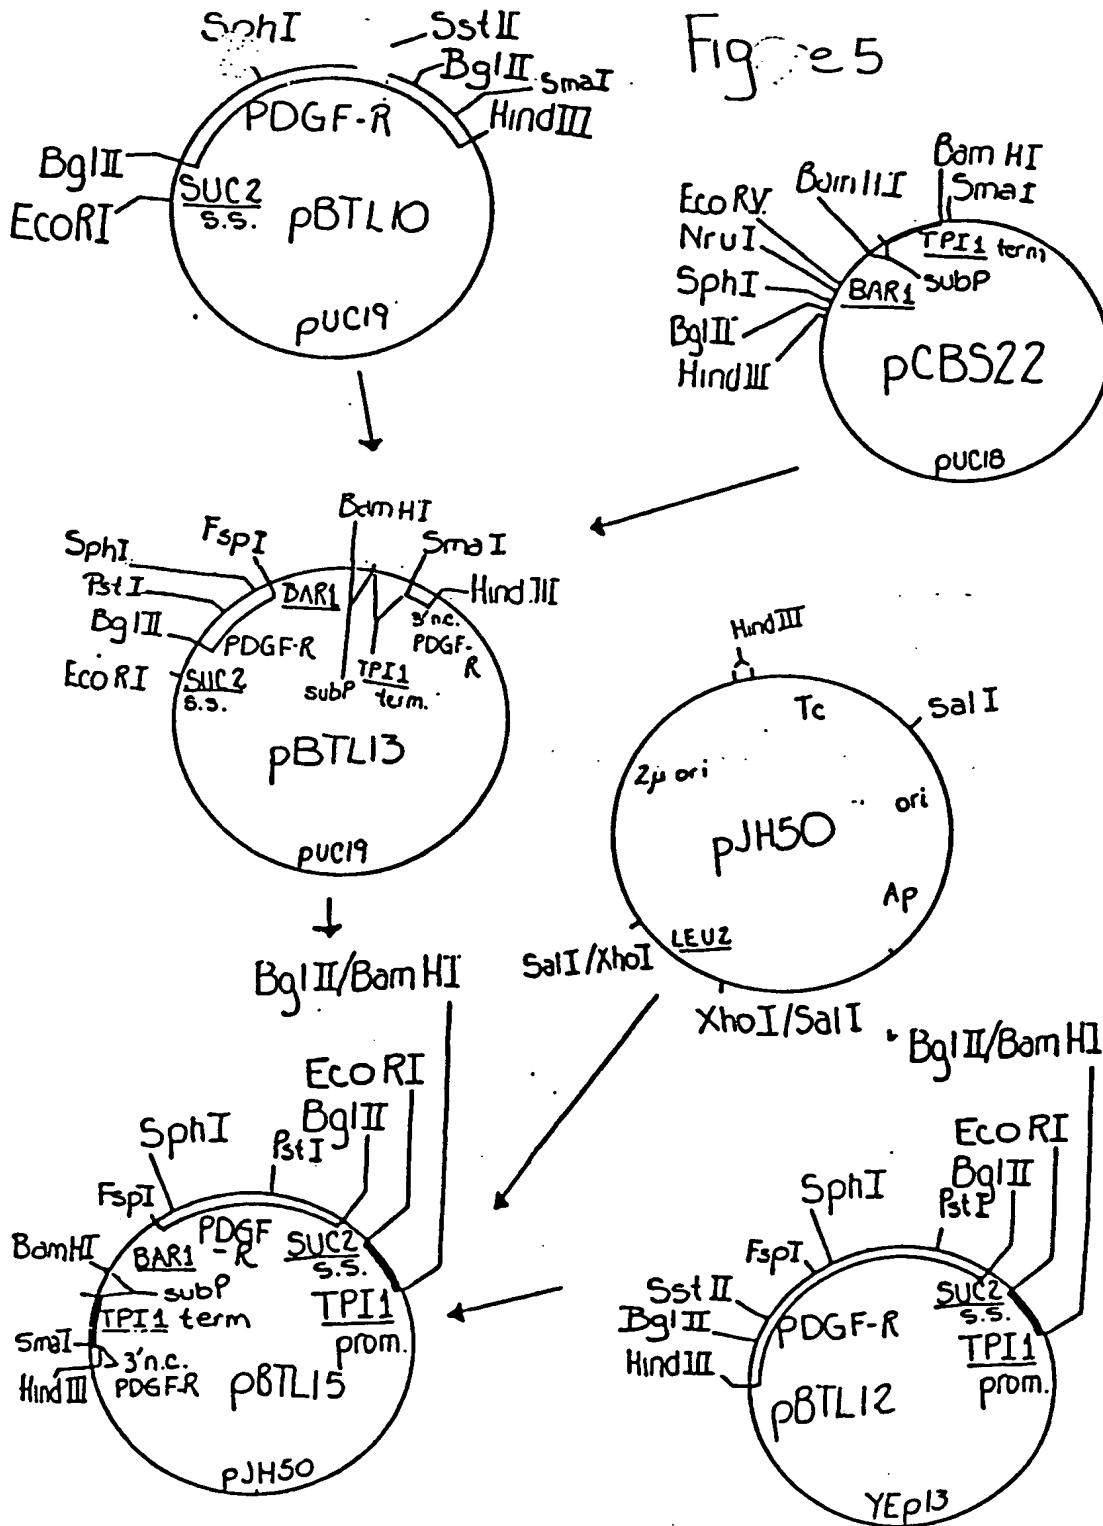 Fig e 5
SphI
SstII
BglII
SmaI
HindIII
PDGF-R
BglII
EcoRI
SUC2
s.s.
pBTL10
pUC19
BamHI
SmaI
BamHI
EcoRV
NruI
SphI
BglII
HindIII
TPI1 term
subP
BAR1
pCBS22
pUC18
BamHI
FspI
SphI
PstI
BglII
EcoRI
SmaI
HindIII
BAR1
3'n.c.
PDGF-
R
PDGF-R
SUC2
s.s.
subP
TPI1
term.
pBTL13
pUC19
HindIII
Tc
SalI
2μ ori
ori
pJH50
Ap
LEU2
SalI/XhoI
XhoI/SalI
BglII/BamHI
EcoRI
BglII
SphI
PstI
FspI
BamHI
PDGF
-R
BAR1
SUC2
s.s.
subP
TPI1 term
TPI1
prom.
SmaI
HindIII
3'n.c.
PDGF-R
pBTL15
pJH50
BglII/BamHI
EcoRI
BglII
SphI
PstI
FspI
SstII
BglII
HindIII
SUC2
s.s.
PDGF-R
TPI1
prom.
pBTL12
YEp13